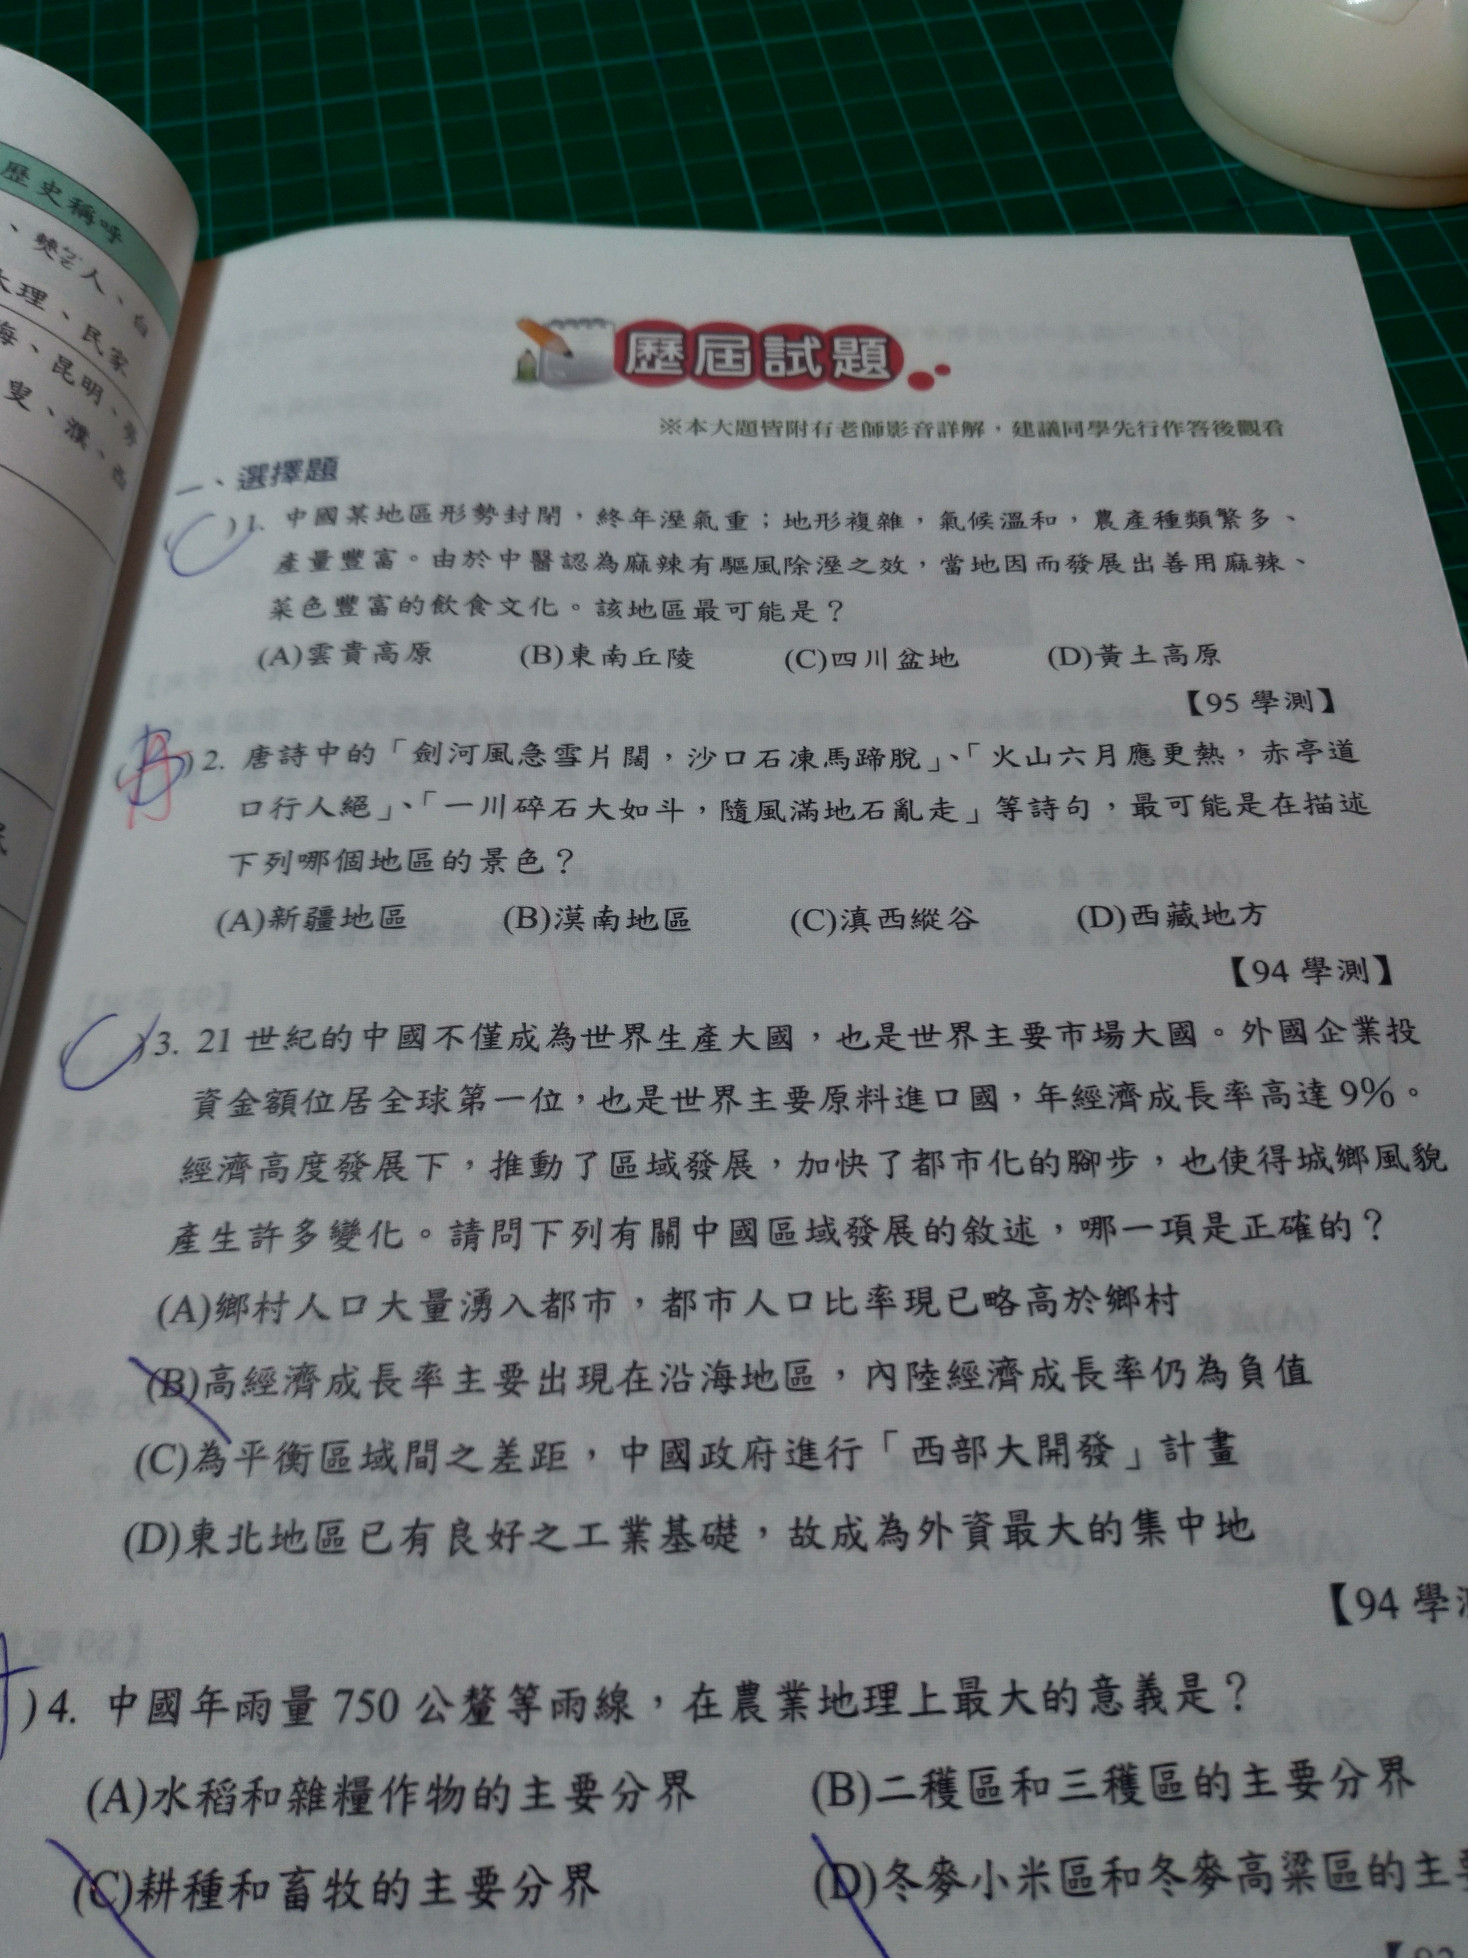 歷史稱呼
、僰人、白
大理、民家
海、昆明、
叟、濮、
歷屆試題
※本大題皆附有老師影音詳解，建議同學先行作答後觀看
一、選擇題
(C)1. 中國某地區形勢封閉，終年溼氣重；地形複雜，氣候溫和，農產種類繁多、
產量豐富。由於中醫認為麻辣有驅風除溼之效，當地因而發展出善用麻辣、
菜色豐富的飲食文化。該地區最可能是？
(A)雲貴高原 (B)東南丘陵 (C)四川盆地 (D)黃土高原
【95 學測】
(A)2. 唐詩中的「劍河風急雪片闊，沙口石凍馬蹄脫」、「火山六月應更熱，赤亭道
口行人絕」、「一川碎石大如斗，隨風滿地石亂走」等詩句，最可能是在描述
下列哪個地區的景色？
(A)新疆地區 (B)漠南地區 (C)滇西縱谷 (D)西藏地方
【94 學測】
(C)3. 21 世紀的中國不僅成為世界生產大國，也是世界主要市場大國。外國企業投
資金額位居全球第一位，也是世界主要原料進口國，年經濟成長率高達 9%。
經濟高度發展下，推動了區域發展，加快了都市化的腳步，也使得城鄉風貌
產生許多變化。請問下列有關中國區域發展的敘述，哪一項是正確的？
(A)鄉村人口大量湧入都市，都市人口比率現已略高於鄉村
(B)高經濟成長率主要出現在沿海地區，內陸經濟成長率仍為負值
(C)為平衡區域間之差距，中國政府進行「西部大開發」計畫
(D)東北地區已有良好之工業基礎，故成為外資最大的集中地
【94 學測
)4. 中國年雨量 750 公釐等雨線，在農業地理上最大的意義是？
(A)水稻和雜糧作物的主要分界 (B)二穫區和三穫區的主要分界
(C)耕種和畜牧的主要分界 (D)冬麥小米區和冬麥高粱區的主要